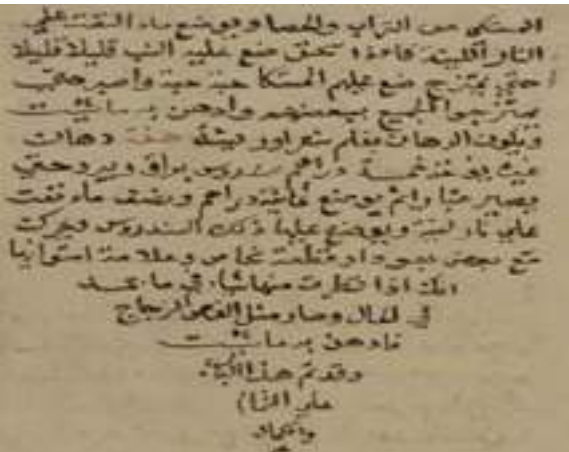 المستكى من التراب والحصا ويوضع ماء النفت على
النار اللينة فاذا سخن ضع عليه الشب قليلا قليلا
حتى يمتزج ضع عليهم المستكا حبة حبة واصبر حتى
يمتزجوا الجميع ببعضهم وادهن به ما شئت
وتكون الدهان بقلم شعر او ريشة صفة دهان
يوخذ خمسة دراهم سندروس براق ويبرد حتى
يصير ثم يوضع ثمانية دراهم ونصف ماء نفت
على نار لينة ويوضع عليها ذلك السندروس ويحرك
مع بعض بعود او قطعة نحاس وعلامة استوائها
انك اذا قطرت منها شيا في ماء
في الحال وصار مثل الزجاج
فادهن به ما شئت
وقد تم هذا الباب
على